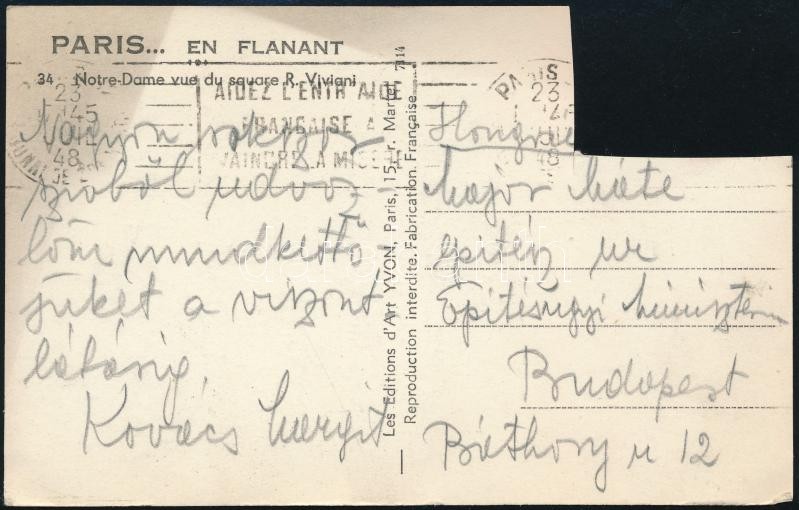 PARIS... EN FLANANT
34 Notre-Dame vue du square R. Viviani
23
1145
48
AIDEZ L'ENTR'AIDE
FRANÇAISE A
VAINCRE LA MISÈRE
Nagyon sok
szóból üdvöz
löm mindkettő
jüket a viszont
látásig,
Kovács Margit
Les Editions d'Art YVON, Paris, 15, r. Martel
Reproduction interdite. Fabrication Française
7114
PARIS
23
48
Hongrie
Major Máté
építész úr
Építésügyi Miniszterium
Budapest
Báthory u 12